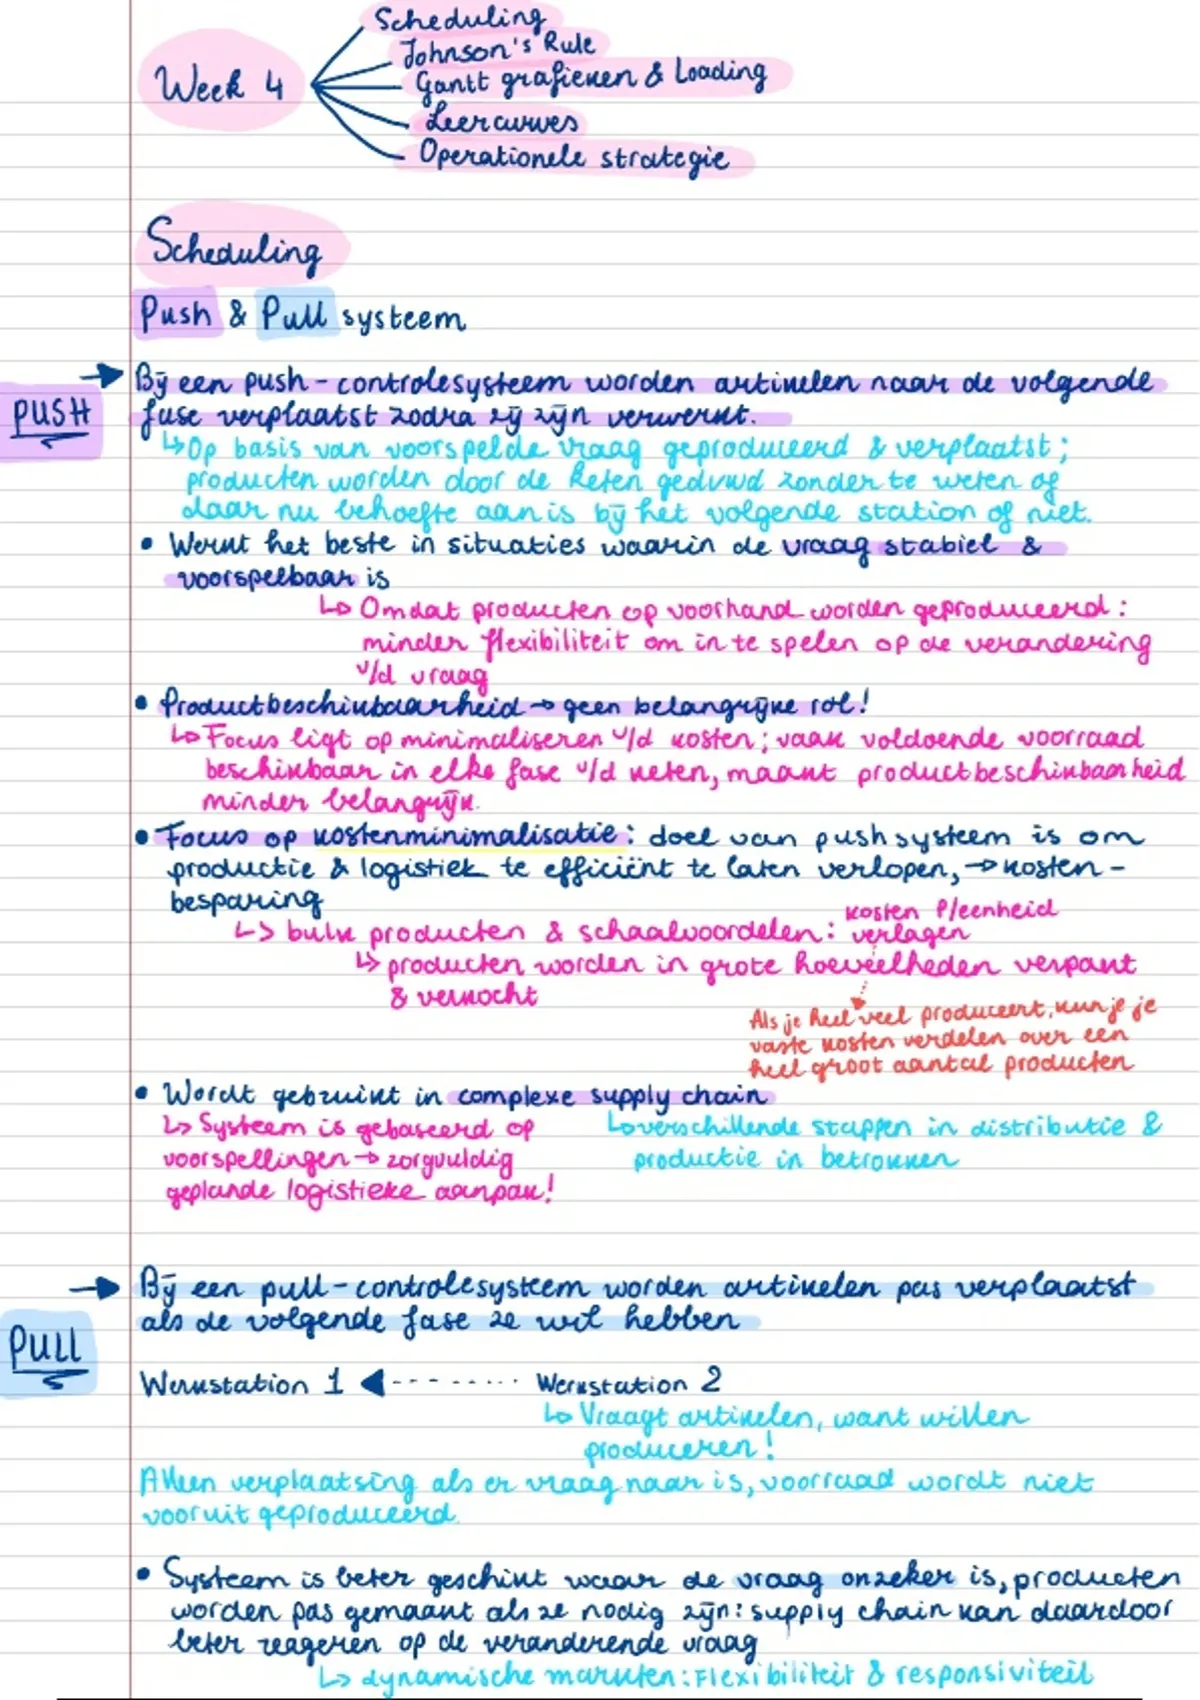 Week 4
Scheduling
Johnson's Rule
Gantt grafieken & Loading
Leercurves
Operationele strategie
Scheduling
Push & Pull systeem
PUSH
Bij een push-controlesysteem worden artikelen naar de volgende
fase verplaatst zodra zij zijn verwerkt.
↳ Op basis van voorspelde vraag geproduceerd & verplaatst;
producten worden door de keten geduwd zonder te weten of
daar nu behoefte aan is bij het volgende station of niet.
• Werkt het beste in situaties waarin de vraag stabiel &
voorspelbaar is
↳ Omdat producten op voorhand worden geproduceerd:
minder flexibiliteit om in te spelen op de verandering
v/d vraag
• Productbeschikbaarheid → geen belangrijke rol!
↳ Focus ligt op minimaliseren v/d kosten; vaak voldoende voorraad
beschikbaar in elke fase v/d keten, maakt productbeschikbaarheid
minder belangrijk.
• Focus op kostenminimalisatie: doel van pushsysteem is om
productie & logistiek te efficiënt te laten verlopen, → kosten-
besparing
↳ bulk producten & schaalvoordelen: kosten p/eenheid
verlagen
↳ producten worden in grote hoeveelheden verpakt
& verkocht
Als je heel veel produceert, kun je je
vaste kosten verdelen over een
heel groot aantal producten
• Wordt gebruikt in complexe supply chain
↳ Systeem is gebaseerd op
voorspellingen → zorgvuldig
geplande logistieke aanpak!
↳ verschillende stappen in distributie &
productie in betrokken
PULL
Bij een pull-controlesysteem worden artikelen pas verplaatst
als de volgende fase ze wil hebben
Werkstation 1 Werkstation 2
↳ Vraagt artikelen, want willen
produceren!
Alleen verplaatsing als er vraag naar is, voorraad wordt niet
vooruit geproduceerd.
• Systeem is beter geschikt waar de vraag onzeker is, producten
worden pas gemaakt als ze nodig zijn: supply chain kan daardoor
beter reageren op de veranderende vraag
↳ dynamische markten: Flexibiliteit & responsiviteit